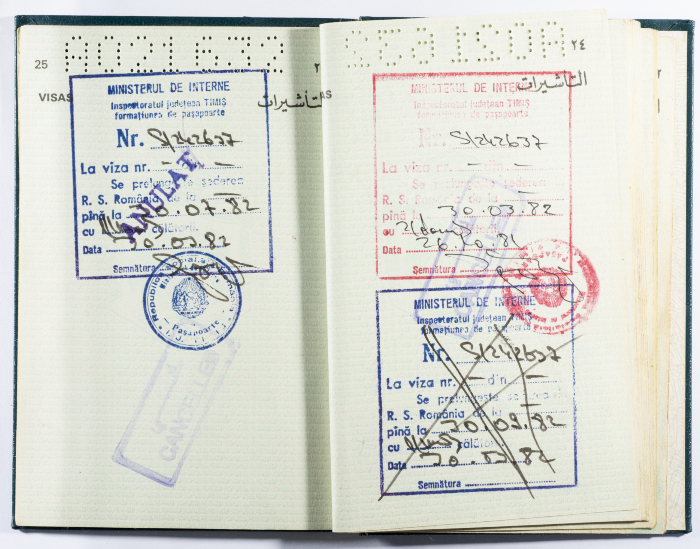 25 A021632
VISAS
التأشيرات
MINISTERUL DE INTERNE
Inspectoratul judeţean TIMIŞ
formaţiunea de paşapoarte
Nr. S/242637
La viza nr. — —
Se prelungeşte şederea
R. S. România de la —
pînă la 30.07.82
cu călători.
Data 30.03.82
Semnătura
ANULAT
Paşapoarte
CANCELLED
٢٤
التأشيرات
AS
MINISTERUL DE INTERNE
Inspectoratul judeţean TIMIŞ
formaţiunea de paşapoarte
Nr. S/242637
La viza nr. — din. —
Se prelungeşte şederea
R. S. România de la —
pînă la 30.03.82
cu
Data 26.10.81
Semnătura
MINISTERUL DE INTERNE
Inspectoratul judeţean TIMIŞ
formaţiunea de paşapoarte
Nr. S/242637
La viza nr. — din —
Se prelungeşte şederea
R. S. România de la —
pînă la 30.09.82
cu călători
Data 30.03.82
Semnătura